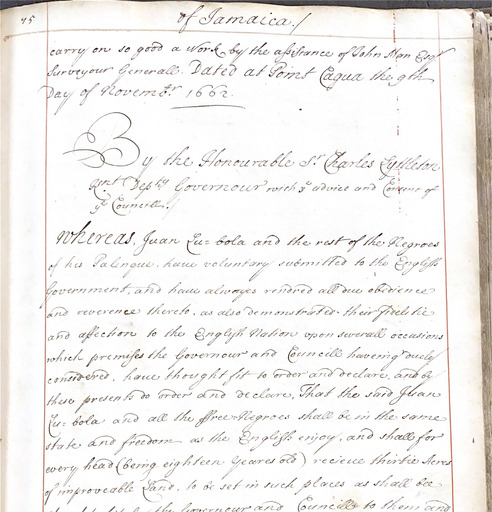 75
of Jamaica./
carry on so good a Work by the assistance of John Man Esqr
Surveyour Generall. Dated at Point Cagua the 9th
Day of Novembr 1662.
By the Honourable Sr Charles Lyttleton
Knt Depty Governour with ye advice and Concurr of
ye Councill.
Whereas, Juan Lu=bola and the rest of the Negroes
of his Palinque, have voluntary submitted to the English
Government, and have always rendred all due obedience
and reverence thereto, as also demonstrated their fidelitie
and affection to the English Nation upon severall occasions
which premises the Governour and Councill haveing duely
considered, have thought fit to order and declare, and by
these presents do order and declare, That the said Juan
Lu=bola and all the ffree Negroes shall be in the same
state and freedom as the English enjoy, and shall for
every head (being eighteen yeares old) recieve thirtie Acres
of improveable Land, to be set in such places as shall bee
the Governour and Councill to them and